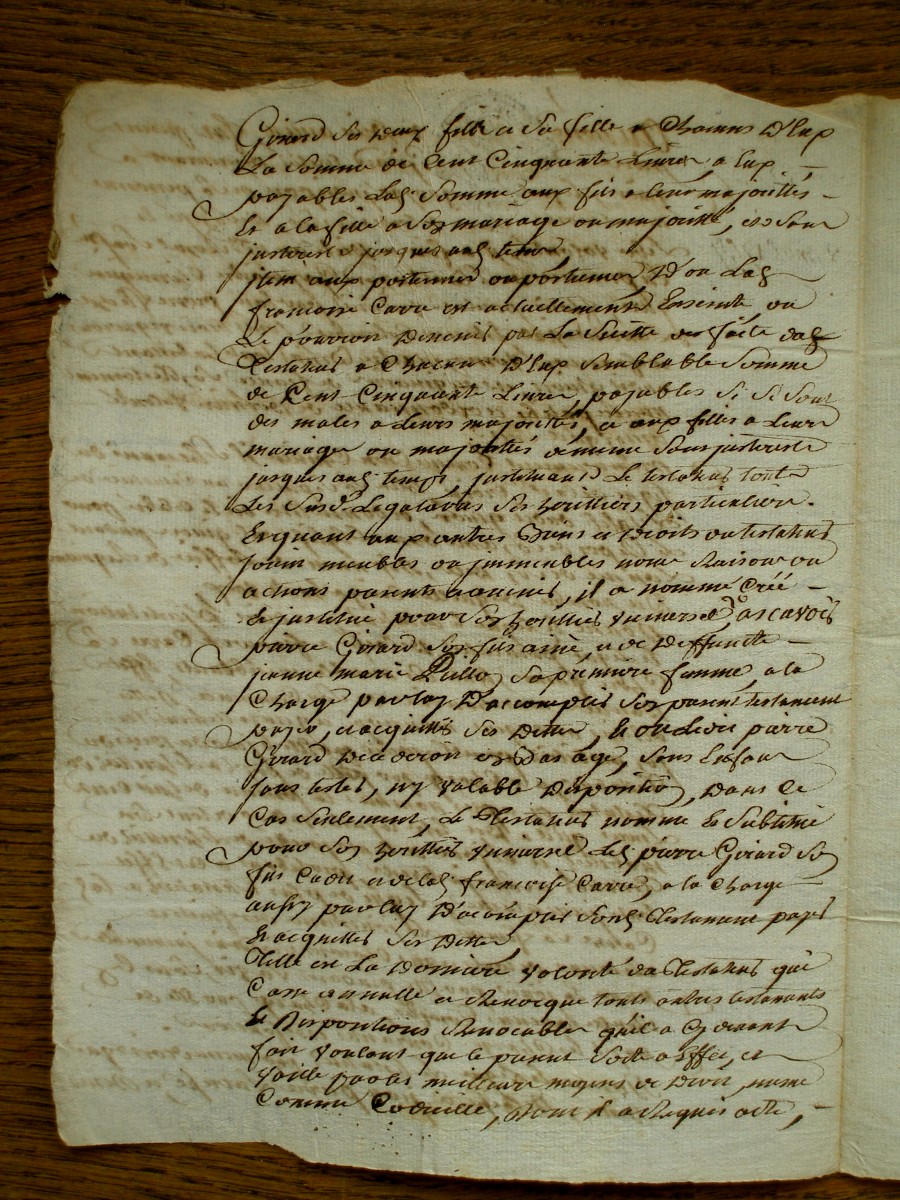 Girard ses deux fille et sa fille a Chacuns d'Eux
La Somme de Cent Cinquante Livres a Eux
payables Lad. Somme aux fils a leur majorittés
Et a la fille a son mariage ou majoritté, et Sans
jntherest jusques aud. temp
jtem aux posteume ou posteumes D'ou Lad.
francoise Carre est actuellement Enceinte, ou
Le pourroit devenir par La Suitte des faits dud.
Testateur a Chacun D'Eux Semblable Somme
de Cent Cinquante Livres, payables Si Se Sont
des males a Leurs majorités, et aux filles a Leurs
mariages ou majorités de meme Sans jntherest
jusques aud. temps, jnstituant Le testateur toutes
Les Susd. Legataires Ses herittiers particuliers.
Enquant aux autres Biens et droits du testateur
soint meubles ou jmmeubles noms Raisons ou
actions presents et avenir, il a nommé Créé
et jnstitué pour Son herittier vniversel, a scavoir
pierre Girard Son fils ainé, et de Deffuncte
jeanne marie Sa premiere femme, a la
Charge par luy D'accomplir Son present testament
payer, et acquitter Ses Dettes, et ou ledit pierre
Girard Decederoit en Bas age, Sans Enfans
Sans tester, ny valable Disposition, Dans Ce
Cas Seulement, Le Testateur nomme et Substitue
pour Son herittier vniversel Led. pierre Girard Son
fils Cadet et de Lad. francoise Carre, a la Charge
aussy par luy D'acomplir Sond. Testament payer
Et acquitter Ses Dettes
Telle est La Derniere volonté du Testateur qui
Casse et annulle et Revocque touts autres testaments
Et Dispositions Revocables qu'il a Cy devant
fait voulant que le present Sorte a Effet, et
vaille par les meilleurs moyens de Droit, meme
Comme Codicille, dont il a Requis acte,